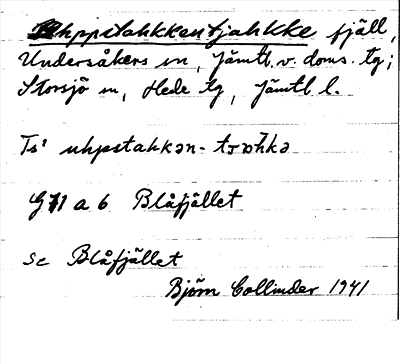 Uhppstahkkentjahkke fjäll,
Undersåkers sn, Jämtl. v. doms. tg;
Storsjö sn, Hede tg, Jämtl l.
Ts: uhpstahkən-
G 11 a 6 Blåfjället
se Blåfjället
Björn Collinder 1941